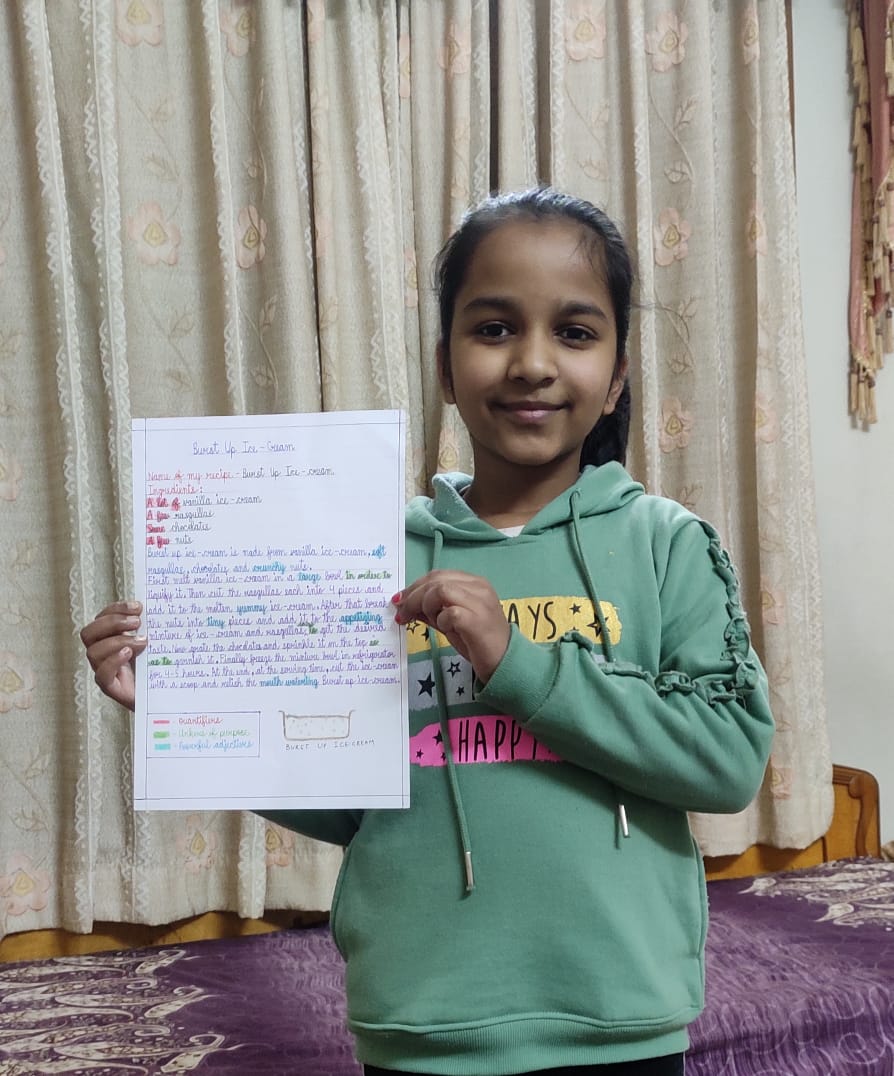 Burst Up Ice-Cream
Name of my recipe - Burst Up Ice-cream
Ingredients :
A lot of vanilla ice-cream
A few rasgullas
Some chocolate
A few nuts
Burst up ice-cream is made from vanilla ice-cream, soft
rasgullas, chocolates and crunchy nuts.
First melt vanilla ice-cream in a large bowl in order to
liquify it. Then cut the rasgullas each into 4 pieces and
add it to the molten yummy ice-cream. After that break
the nuts into tiny pieces and add it to the appetizing
mixture of ice-cream and rasgullas, to get the desired
taste. Now grate the chocolate and sprinkle it on the top so
as to garnish it. Finally freeze the mixture bowl in refrigerator
for 4-5 hours. At the end, at the serving time, cut the ice-cream
with a scoop and relish the mouth watering Burst up ice-cream.
- Quantifiers
- Linkers of purpose
- Powerful adjectives
BURST UP ICE-CREAM
AYS
HAPPY